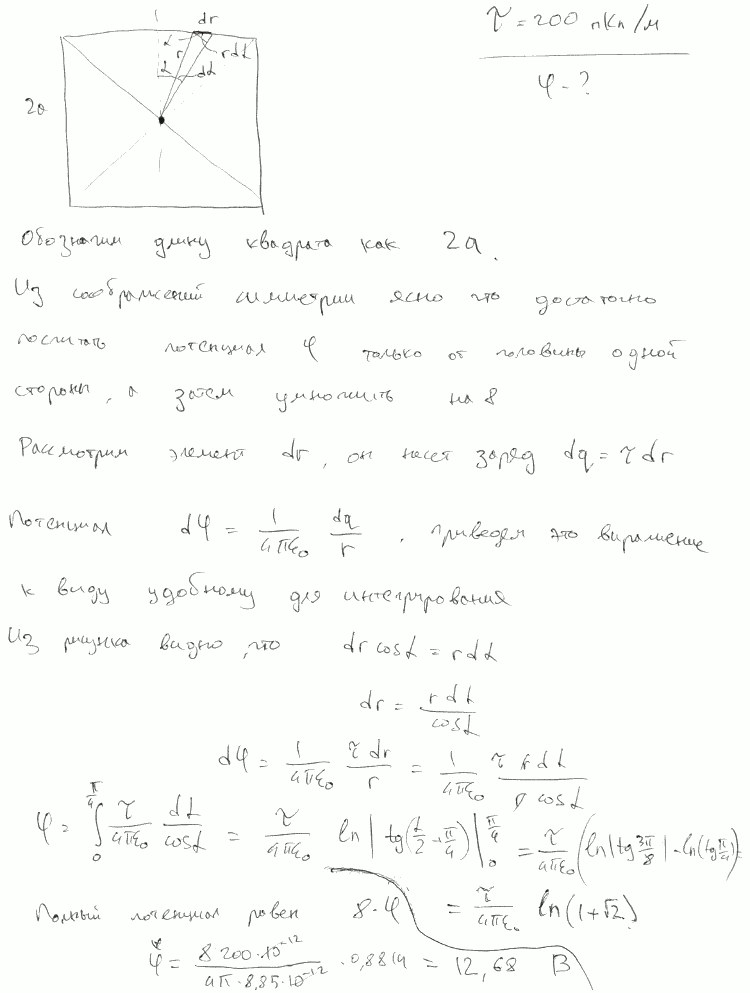 dr
α r r dα
α dα
2a
τ = 200 пКл/м
φ - ?
Обозначим длину квадрата как 2a.
Из соображений симметрии ясно что достаточно
посчитать потенциал φ только от половины одной
стороны, а затем умножить на 8
Рассмотрим элемент dr, он несет заряд dq = τ dr
Потенциал dφ = 1/(4πε₀) dq/r, приведем это выражение
к виду удобному для интегрирования
Из рисунка видно, что dr cosα = r dα
dr = r dα / cosα
dφ = 1/(4πε₀) τ dr / r = 1/(4πε₀) τ r dα / (r cosα)
φ = ∫₀^(π/4) τ/(4πε₀) dα/cosα = τ/(4πε₀) ln|tg(α/2 + π/4)| |₀^(π/4) = τ/(4πε₀) (ln|tg 3π/8| - ln(tg π/4)) =
= τ/(4πε₀) ln(1+√2)
Полный потенциал равен 8·φ
φ = 8 200·10⁻¹² / (4π·8,85·10⁻¹²) · 0,8814 = 12,68 В